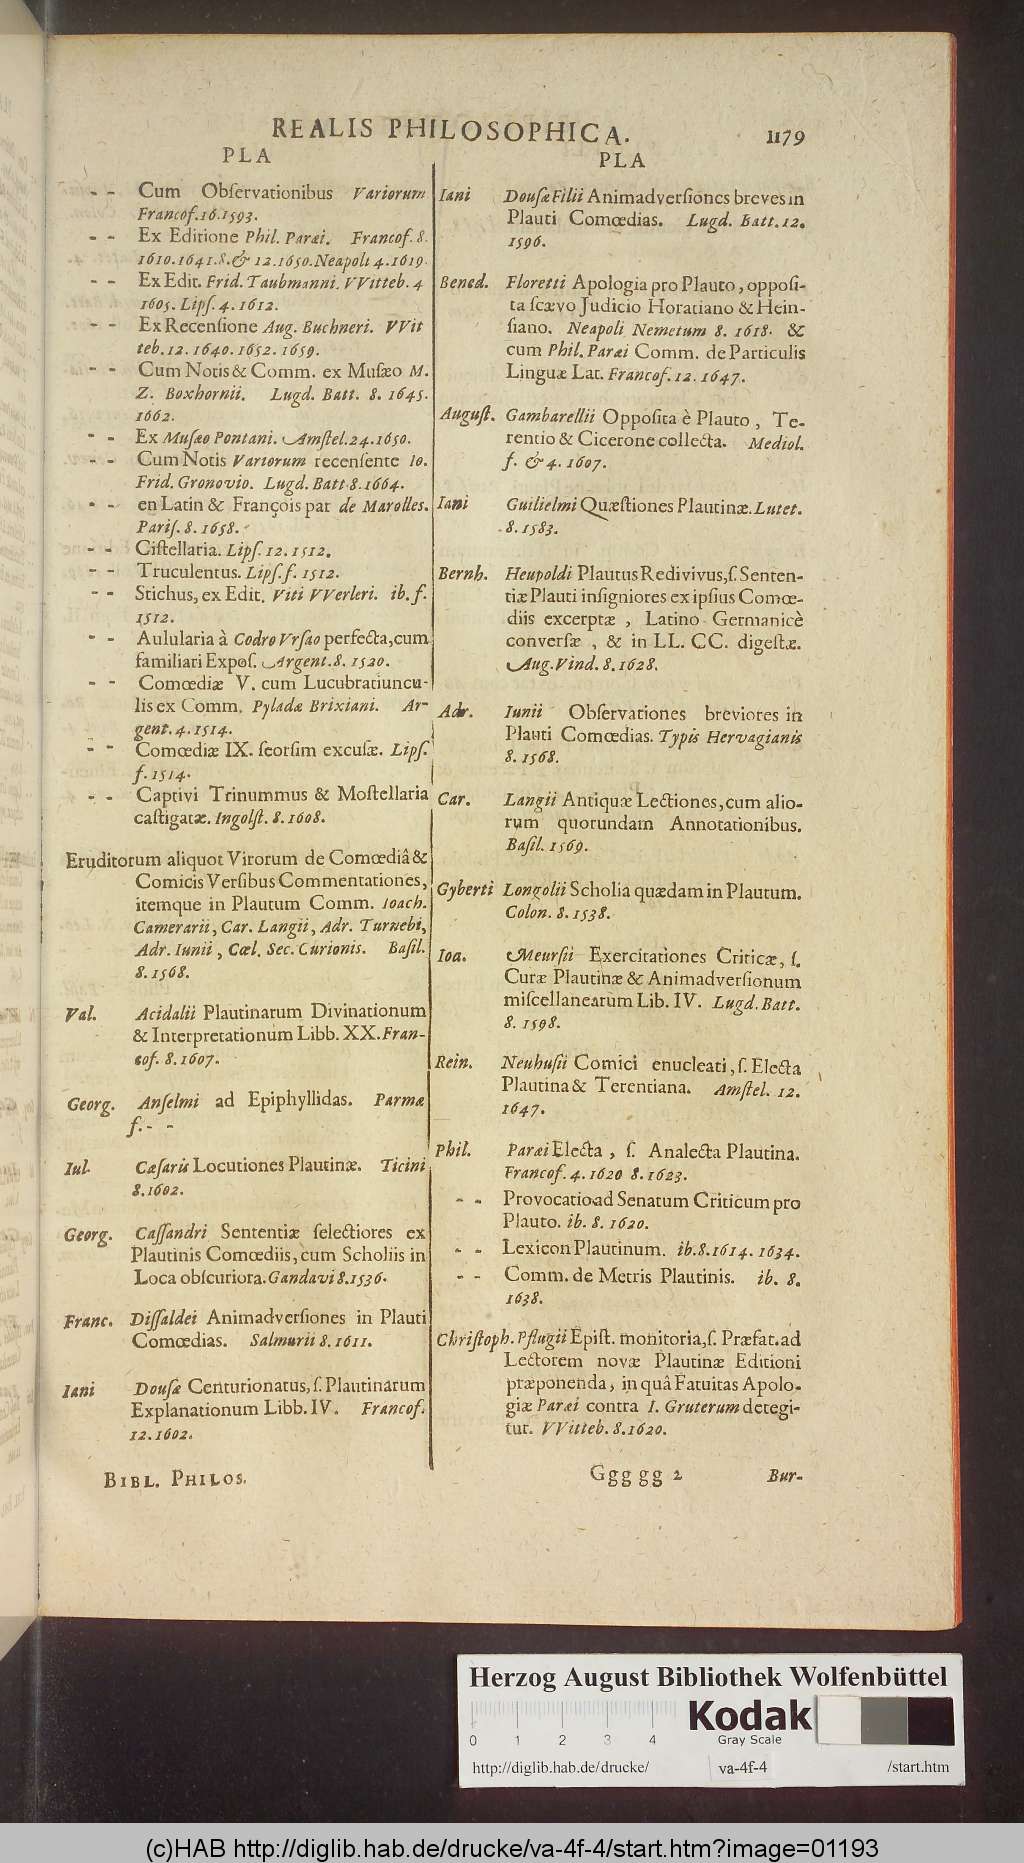 REALIS PHILOSOPHICA. 1179
PLA
- - Cum Obſervationibus Variorum
Francof.16.1593.
- - Ex Editione Phil. Paræi. Francof. 8.
1610.1641.8.& 12.1650.Neapoli 4.1619.
- - Ex Edit. Frid. Taubmanni. VVitteb. 4
1605. Lipſ. 4. 1612.
- - Ex Recenſione Aug. Buchneri. VVit
teb. 12. 1640. 1652. 1659.
- - Cum Notis & Comm. ex Muſæo M.
Z. Boxhornii. Lugd. Batt. 8. 1645.
1662.
- - Ex Muſæo Pontani. Amſtel. 24. 1650.
- - Cum Notis Variorum recenſente Io.
Frid. Gronovio. Lugd. Batt. 8. 1664.
- - en Latin & François par de Marolles.
Pariſ. 8. 1658.
- - Ciſtellaria. Lipſ. 12. 1512.
- - Truculentus. Lipſ. f. 1512.
- - Stichus, ex Edit. Viti VVerleri. ib. f.
1512.
- - Aulularia à Codro Vrſao perfecta, cum
familiari Expoſ. Argent. 8. 1520.
- - Comœdiæ V. cum Lucubratiuncu-
lis ex Comm. Pyladæ Brixiani. Ar-
gent. 4. 1514.
- - Comœdiæ IX. ſeorſim excuſæ. Lipſ.
f. 1514.
- - Captivi Trinummus & Moſtellaria
caſtigatæ. Ingolſt. 8. 1608.
Eruditorum aliquot Virorum de Comœdiâ &
Comicis Verſibus Commentationes,
itemque in Plautum Comm. Ioach.
Camerarii, Car. Langii, Adr. Turnebi,
Adr. Iunii, Cæl. Sec. Curionis. Baſil.
8. 1568.
Val. Acidalii Plautinarum Divinationum
& Interpretationum Libb. XX. Fran-
cof. 8. 1607.
Georg. Anſelmi ad Epiphyllidas. Parmæ
f. - -
Iul. Cæſaris Locutiones Plautinæ. Ticini
8. 1602.
Georg. Caſſandri Sententiæ ſelectiores ex
Plautinis Comœdiis, cum Scholiis in
Loca obſcuriora. Gandavi 8. 1536.
Franc. Diſſaldei Animadverſiones in Plauti
Comœdias. Salmurii 8. 1611.
Iani Douſæ Centurionatus, ſ. Plautinarum
Explanationum Libb. IV. Francof.
12. 1602.
BIBL. PHILOS.
PLA
Iani Douſæ Filii Animadverſiones breves in
Plauti Comœdias. Lugd. Batt. 12.
1596.
Bened. Floretti Apologia pro Plauto, oppoſi-
ta ſcævo Judicio Horatiano & Hein-
ſiano. Neapoli Nemetum 8. 1618. &
cum Phil. Paræi Comm. de Particulis
Linguæ Lat. Francof. 12. 1647.
Auguſt. Gambarellii Oppoſita è Plauto, Te-
rentio & Cicerone collecta. Mediol.
f. & 4. 1607.
Iani Guilielmi Quæſtiones Plautinæ. Lutet.
8. 1583.
Bernh. Heupoldi Plautus Redivivus, ſ. Senten-
tiæ Plauti inſigniores ex ipſius Comœ-
diis excerptæ, Latino Germanicè
converſæ, & in LL. CC. digeſtæ.
Aug. Vind. 8. 1628.
Adr. Iunii Obſervationes breviores in
Plauti Comœdias. Typis Hervagianis
8. 1568.
Car. Langii Antiquæ Lectiones, cum alio-
rum quorundam Annotationibus.
Baſil. 1569.
Gyberti Longolii Scholia quædam in Plautum.
Colon. 8. 1538.
Ioa. Meurſii Exercitationes Criticæ, ſ.
Curæ Plautinæ & Animadverſionum
miſcellanearum Lib. IV. Lugd. Batt.
8. 1598.
Rein. Neuhuſii Comici enucleati, ſ. Electa
Plautina & Terentiana. Amſtel. 12.
1647.
Phil. Paræi Electa, ſ. Analecta Plautina.
Francof. 4. 1620 8. 1623.
- - Provocatio ad Senatum Criticum pro
Plauto. ib. 8. 1620.
- - Lexicon Plautinum. ib. 8. 1614. 1634.
- - Comm. de Metris Plautinis. ib. 8.
1638.
Chriſtoph. Pflugii Epiſt. monitoria, ſ. Præfat. ad
Lectorem novæ Plautinæ Editioni
præponenda, in quâ Fatuitas Apolo-
giæ Paræi contra I. Gruterum detegi-
tur. VVitteb. 8. 1620.
Ggg gg 2 Bur-
Herzog August Bibliothek Wolfenbüttel
Kodak
Gray Scale
0 1 2 3 4
http://diglib.hab.de/drucke/ va-4f-4 /start.htm
(c)HAB http://diglib.hab.de/drucke/va-4f-4/start.htm?image=01193